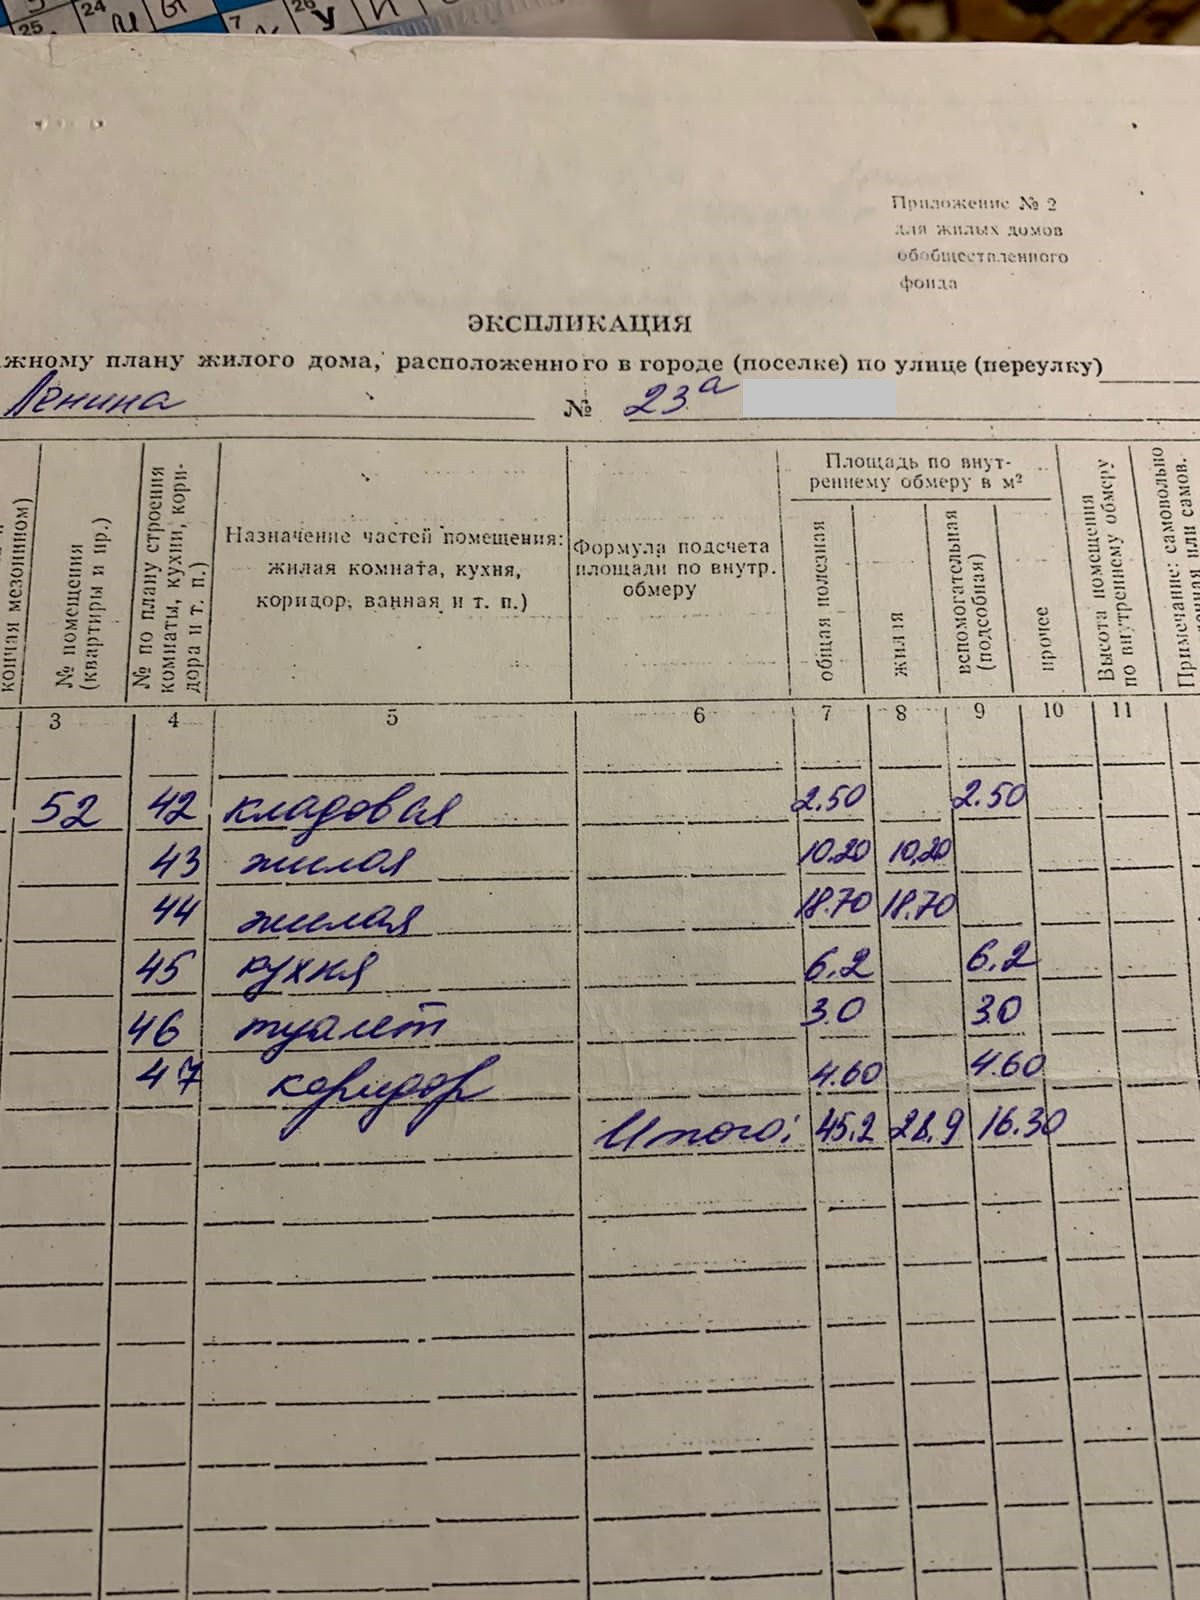 25 24 И Ы 7 26 У И
Приложение № 2
для жилых домов
обобществленного
фонда
ЭКСПЛИКАЦИЯ
жному плану жилого дома, расположенного в городе (поселке) по улице (переулку)
Ленина № 23а
кончая мезонином)
№ помещения (квартиры и пр.)
№ по плану строения комнаты, кухни, коридора и т. п.)
Назначение частей помещения:
жилая комната, кухня,
коридор, ванная и т. п.)
Формула подсчета
площади по внутр.
обмеру
Площадь по внут-
реннему обмеру в м²
общая полезная
жилая
вспомогательная (подсобная)
прочее
Высота помещения по внутреннему обмеру
Примечание: самовольно
или самов.
3 4 5 6 7 8 9 10 11
52 42 кладовая 2.50 2.50
43 жилая 10.20 10,20
44 жилая 18.70 18.70
45 кухня 6.2 6.2
46 туалет 3.0 3.0
47 коридор 4.60 4.60
Итого: 45.2 28,9 16.30